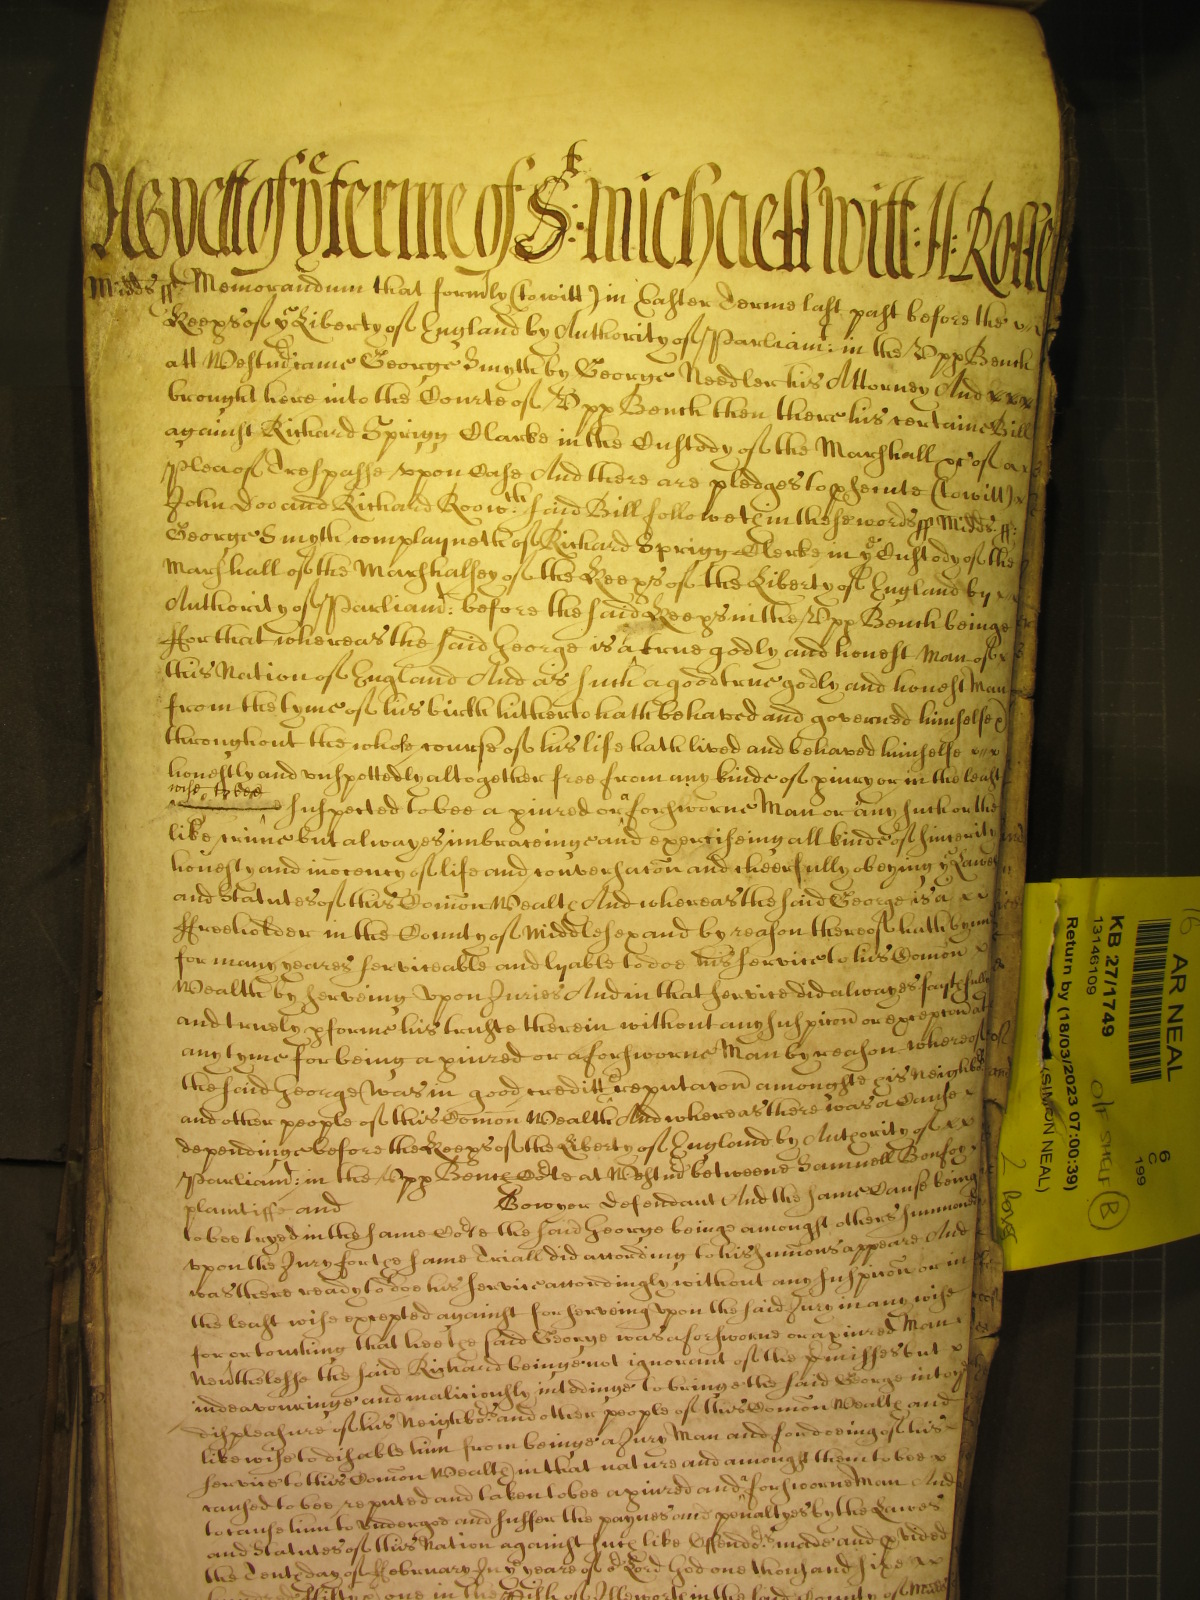 As yett of ye terme of St: Michaell Witt: H: Rolle
Midds ss Memorandum that formly (to witt) in Easter Terme last past before the
Keeps of ye Liberty of England by Authority of Parliamt: in the Upp Bench
att Westm came George Smyth by George Needler his Attorney And
brought here into the Courte of Upp Bench then there his certaine Bill
against Richard Sprigg Clarke in the Custody of the Marshall &c of a
Plea of Trespasse upon Case And there are pledges to psecute (to witt)
John Doo and Richard Roo wch: said Bill followeth in these words ss Midds ss:
George Smyth complayneth of Richard Sprigg Clerke in ye Custody of the
Marshall of the Marshalsey of the Keeps of the Liberty of England by
Authority of Parliamt: before the said Keeps in the Upp Bench beinge
ffor that whereas the said George is a true godly and honest Man of
this Nation of England And as such a good true godly and honest Man
from the tyme of his birth hitherto hath behaved and governed himselfe &
throughout the whole course of his life hath lived and behaved himselfe
honestly and unspottedly altogether free from any kinde of piury or in the least
wise to bee
suspected to bee a piured or a forsworne Man or any such or the
like crime but alwayes imbraceinge and exerciseing all kinde of sincerity
honesty and inocency of life and conversacon and cheerfully obeying ye Lawes
and Statutes of this Comon Wealth And whereas the said George is a
ffreeholder in the County of Middlesex and by reason thereof hath byn
for many yeares serviceable and lyable to doe his service to his Comon
Wealth by serveing upon Juries And in that service did alwayes faithfully
and truely pforme his truste therein without any suspicon or excepcon at
any tyme for being a piured or a forsworne Man by reason whereof
the said George was in good creditt & reputacon amongste his Neighbors
and other people of this Comon Wealth And whereas there was a Cause
dependinge before the Keeps of the Liberty of England by Authority of
Parliamt: in the Upp Bench Corte at Westm betweene Samuell Bonfoy
plaintiffe and Bowyer Defendant And the same Cause being
to bee tryed in the same Corte the said George beinge amongst others summoned
upon the Jury for the same Triall did according to his sumons appeare And
was there ready to doe his service accordingly without any suspicon or in
the least wise excepted against for serveing upon the said Jury in any wise
for or touching that hee the said George was a forsworne or a piured Man
Nevthelesse the said Richard beinge not ignorant of the pmisses but
indeavouringe and maliciously intendinge to bringe the said George into
displeasure of his Neighbors and other people of this Comon Wealth and
likewise to disable him from beinge a Jury Man and for doeing of his
service to this Comon Wealth in that nature and amongst them to bee
caused to bee reputed and taken to bee a piured and a forsworne Man And
to cause him to undergoe and suffer the paynes and penaltyes by the Lawes
and Statutes of this Nation against such like Offendors made and pvided
the Tenth day of ffebruary In ye yeare of or Lord God one thousand sixe
hundred ffifty & one in the pish of in the said County of Midds
AR NEAL
KB 27/1749
13146109
Return by (18/03/2023 07:00:39)
(SIMON NEAL)
6
C
199
O/F SHELF (B)
2 boxes